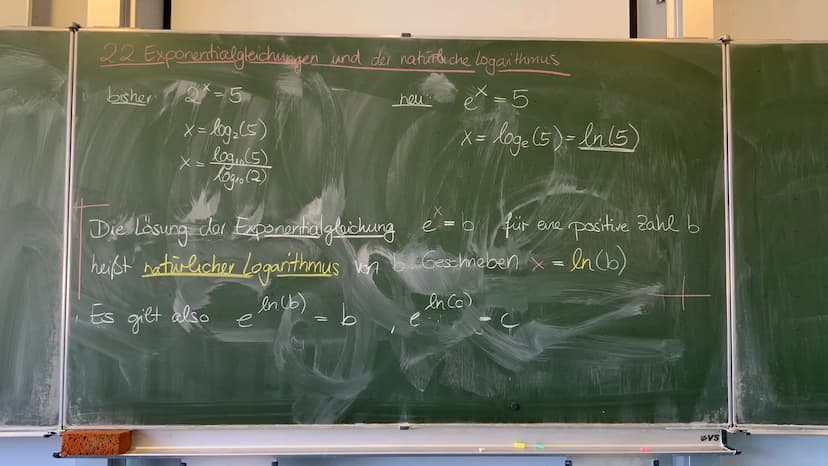 2.2 Exponentialgleichungen und der natürliche Logarithmus
bisher 2^x = 5
neu: e^x = 5
x = log₂(5)
x = logₑ(5) = ln(5)
x = log₁₀(5) / log₁₀(2)
Die Lösung der Exponentialgleichung e^x = b für eine positive Zahl b
heißt natürlicher Logarithmus von b. Geschrieben x = ln(b)
Es gilt also e^ln(b) = b , e^ln(c) = c
VS